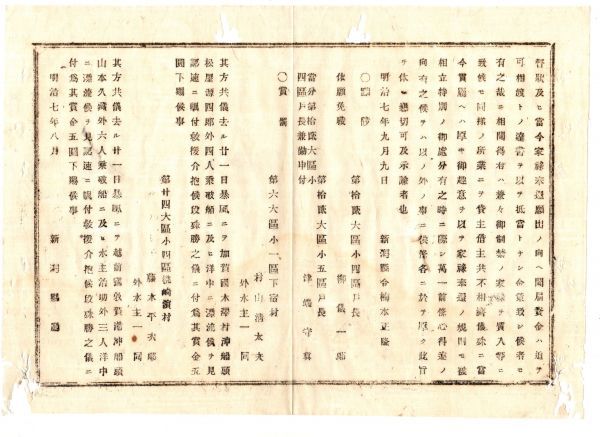 督取及ヒ當今家祿奉還願出ノ向ヘ聞届資金ハ追テ
可相渡トノ達書ヲ以テ抵當トナシ金策致シ候者モ
有之哉ニ相聞得右ハ兼々御制禁ノ家祿ヲ質入等ニ
致候モ同樣ノ所業ニテ貸主借主共不相濟儀殊ニ當
今貫屬ヘハ厚キ御趣意ヲ以テ家祿奉還ノ規則モ被
相立特別ノ御處分有之時ニ際シ萬一前條心得違ノ
向有之候テハ以ノ外ノ事ニ候條各ニ於テ厚ク此旨
ヲ体シ懇切可及示諭者也
明治七年九月九日 新潟縣令楠本正隆
〇黜陟
第拾
大區小四區戸長
依願免職 柳儀一郎
第拾
大區小五區戸長
當分第拾
大區小
四區戸長兼勤申付 津端守眞
〇賞
第六大區小一區下宿村
村山清太夫
外水主一同
其方共儀去ル廿一日暴風ニテ加賀國木津村沖船頭
松屋源四郎外四人乘破船ニ及ヒ洋中ニ漂流候ヲ見
認速ニ
付救援介抱候段殊勝之儀ニ付爲其賞金五
圓下賜候事
第廿四大區小四區
崎濱村
藤木平
外水主一同
其方共儀去ル廿一日暴風ニテ越前國敦賀港沖船頭
山本久藏外六人乘破船ニ及ヒ水主治助外三人洋中
ニ漂流候ヲ見認速ニ
付救援介抱候段殊勝之儀ニ
付爲其賞金五圓下賜候事
明治七年八月 新潟縣廳